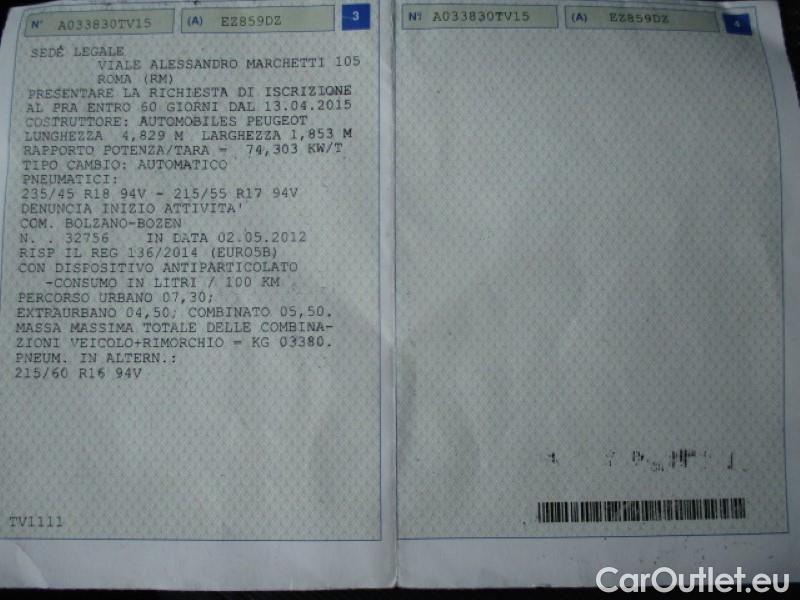 N° A033830TV15 (A) EZ859DZ 3
SEDE LEGALE
VIALE ALESSANDRO MARCHETTI 105
ROMA (RM)
PRESENTARE LA RICHIESTA DI ISCRIZIONE
AL PRA ENTRO 60 GIORNI DAL 13.04.2015
COSTRUTTORE: AUTOMOBILES PEUGEOT
LUNGHEZZA 4,829 M LARGHEZZA 1,853 M
RAPPORTO POTENZA/TARA = 74,303 KW/T
TIPO CAMBIO: AUTOMATICO
PNEUMATICI:
235/45 R18 94V - 215/55 R17 94V
DENUNCIA INIZIO ATTIVITA'
COM. BOLZANO-BOZEN
N. . 32756 IN DATA 02.05.2012
RISP IL REG 136/2014 (EURO5B)
CON DISPOSITIVO ANTIPARTICOLATO
-CONSUMO IN LITRI / 100 KM
PERCORSO URBANO 07,30;
EXTRAURBANO 04,50; COMBINATO 05,50.
MASSA MASSIMA TOTALE DELLE COMBINA-
ZIONI VEICOLO+RIMORCHIO = KG 03380.
PNEUM. IN ALTERN.:
215/60 R16 94V
TV1111
N° A033830TV15 (A) EZ859DZ 4
CarOutlet.eu